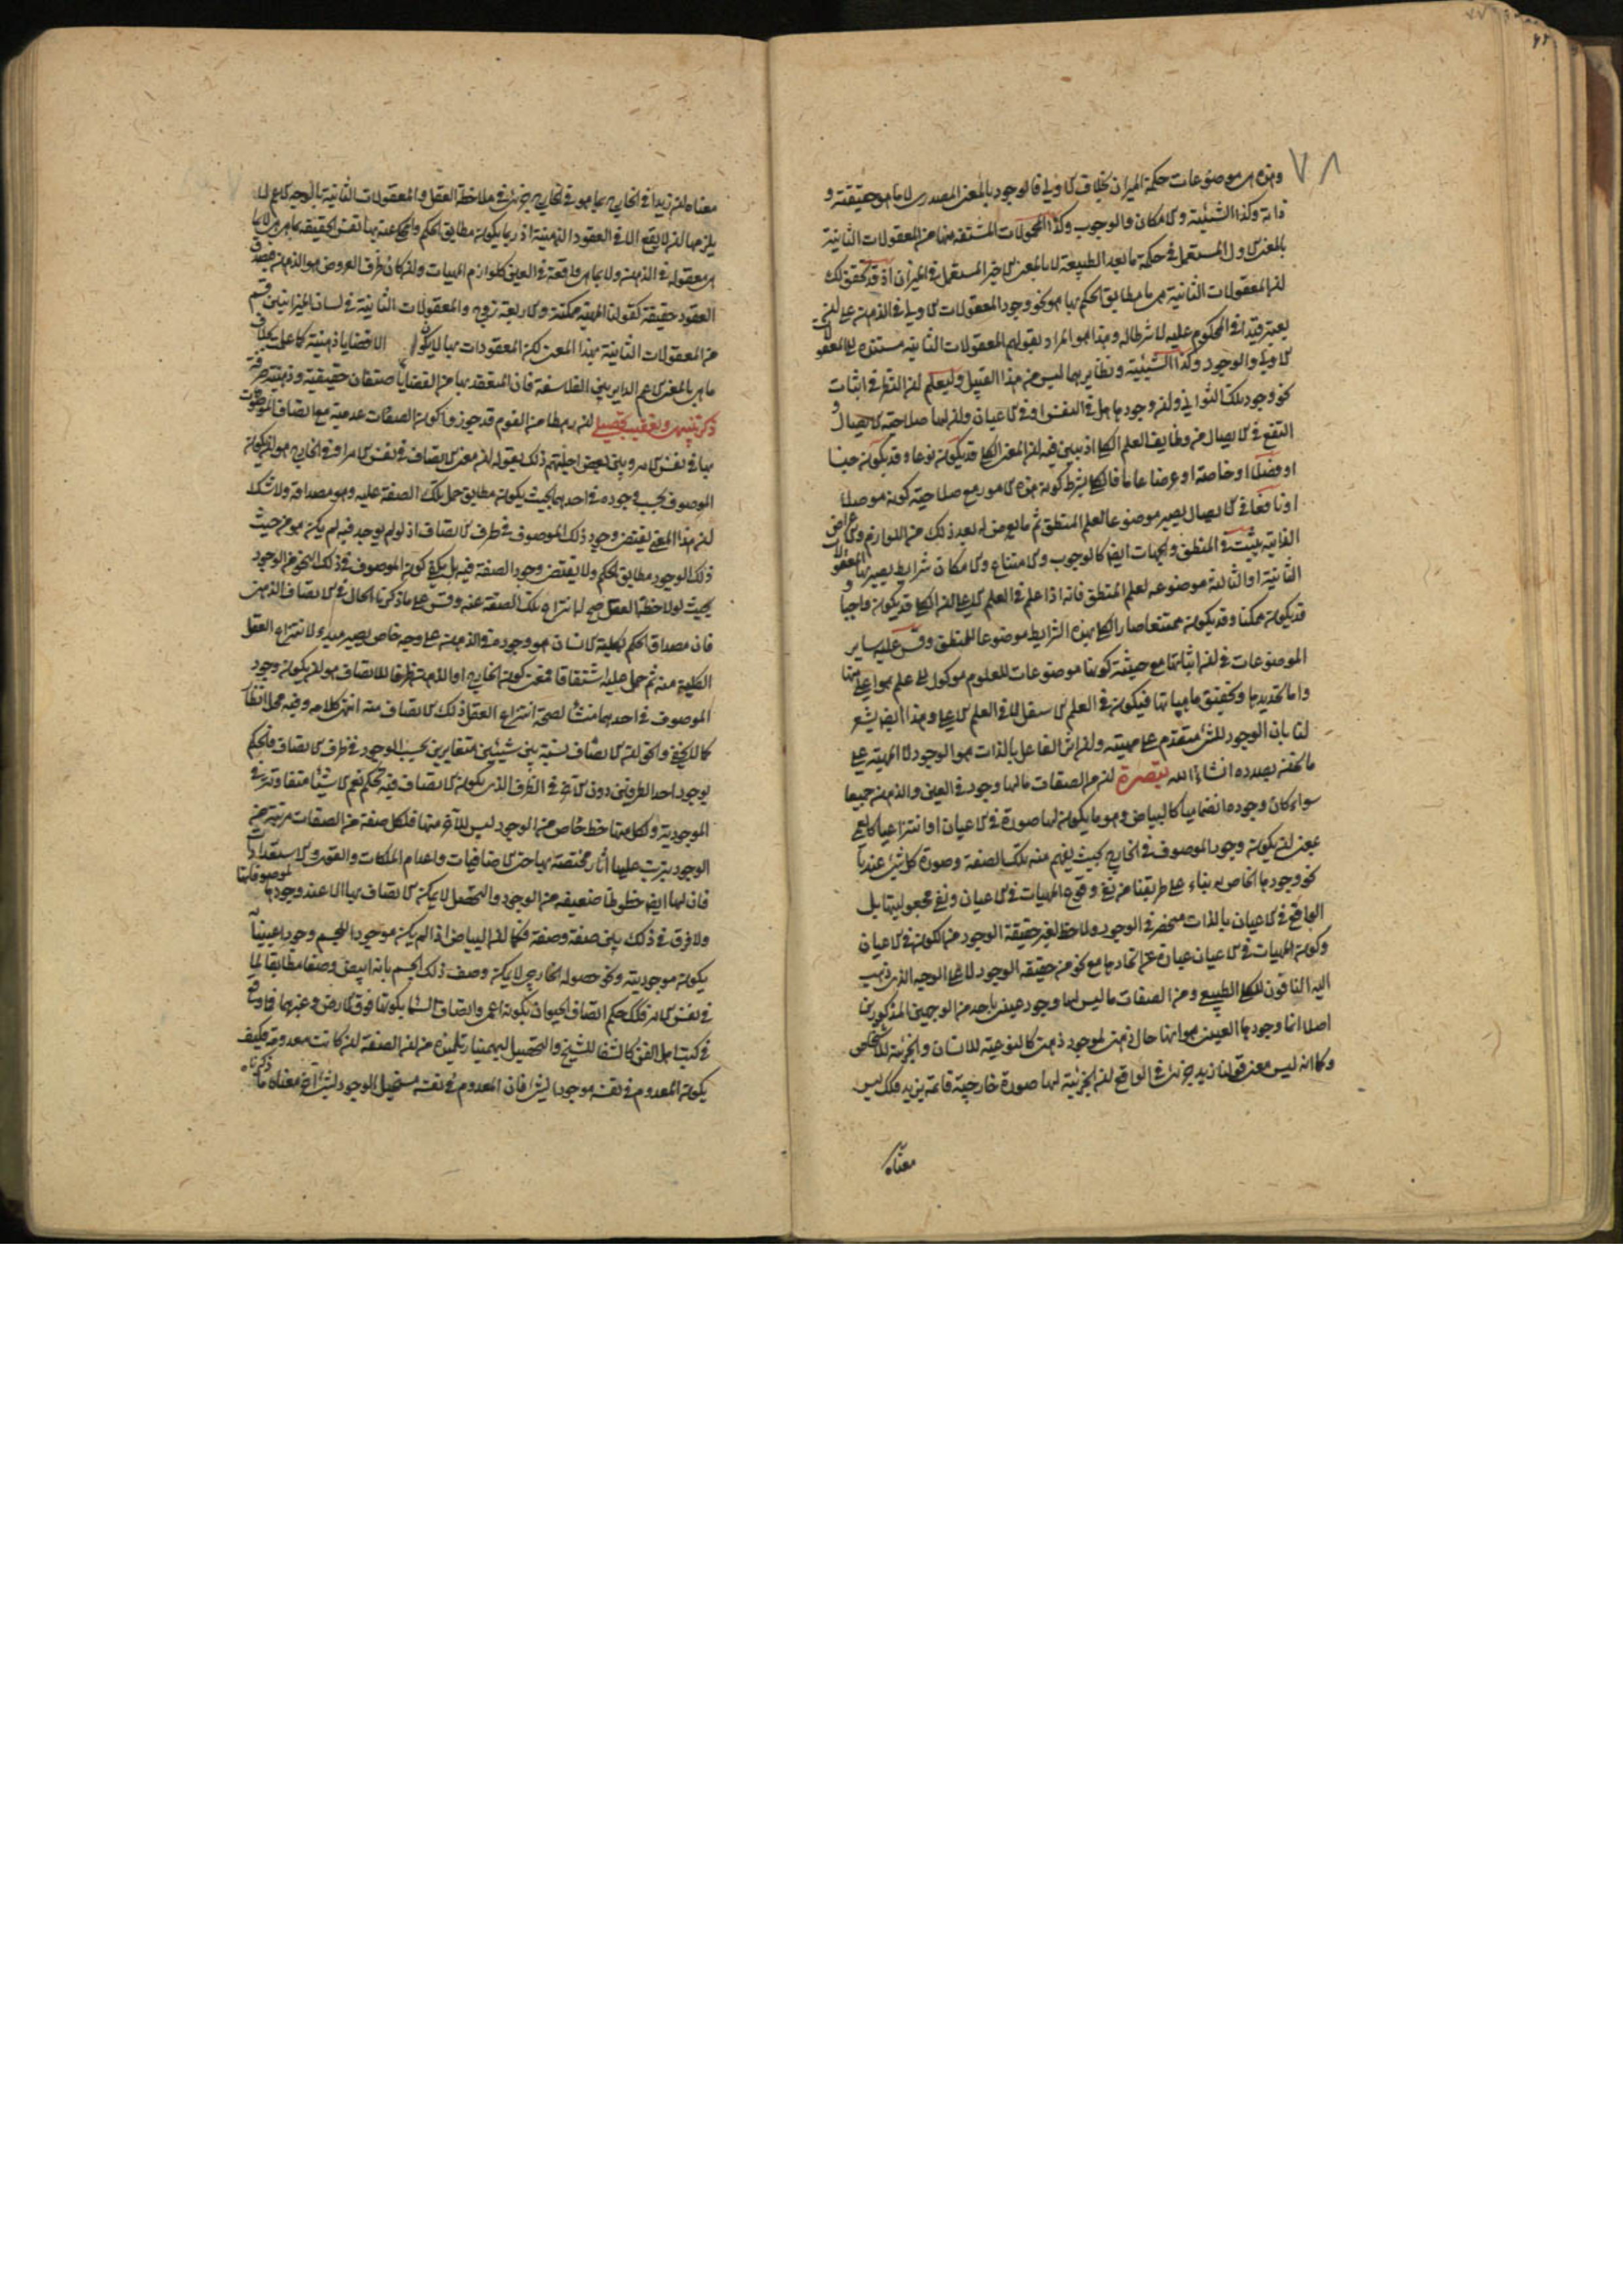 ٧٨
وهذه هي موضوعات حكمة الميزان بخلاف الاولى فالوجود بالمعنى المصدري لا ما هو حقيقته و
ذاته وكذا الشيئية والامكان والوجوب وكذا المحمولات المشتقة منها من المعقولات الثانية
بالمعنى الاول المستعمل في حكمة ما بعد الطبيعة لا بالمعنى الاخير المستعمل في الميزان اذ قد تحقق لك
ان المعقولات الثانية هي ما مطابق الحكم بها هو نحو وجود المعقولات الاولى في الذهن على ان
يعتبر قيدا في المحكوم عليه لا شرطا له وهذا هو المراد بقولهم المعقولات الثانية مستندة الى المعقولات
الاولى والوجود وكذا الشيئية ونظايرهما ليس من هذا القبيل وليعلم ان النظر في اثبات
نحو وجود تلك الثواني وان وجودها هل في النفس او في الاعيان وان لها صلاحية الايصال و
النفع في الايصال من وظايف العلم الكلي اذ يبين فيه ان المعنى الكلي قد يكون نوعا وقد يكون جنسا
او فصلا او خاصة او عرضا عاما فالكلي بشرط كونه هذه الامور مع صلاحية كونه موصلا
او نافعا في الايصال يصير موضوعا لعلم المنطق ثم ما يعرض له بعد ذلك من اللوازم والاعراض
الذاتية يثبت في المنطق والجهات ايضا كالوجوب والامتناع والامكان شرايط يصير بها المعقولات
الثانية او الثالثة موضوعه لعلم المنطق فانه اذا علم في العلم الاعلى ان الكلي قد يكون واجبا و
قد يكون ممكنا وقد يكون ممتنعا صار الكلي بهذه الشرايط موضوعا للمنطق وقس عليه ساير
الموضوعات في ان اثباتها مع حيثية كونها موضوعات للعلوم موكول الى علم هو اعلى منها
واما تحديدها وتحقيق ماهياتها فيكون في العلم الاسفل لا في العلم الاعلى وهذا ايضا يشعر
لنا بان الوجود للشئ متقدم على مهيته وان اثر الفاعل بالذات هو الوجود لا الماهية على
ما نحن بصدده انشاء الله تبصرة ان من الصفات ما لها وجود في العين والذهن جميعا
سواء كان وجوده انضماميا كالبياض وهو ما يكون لها صورة في الاعيان او انتزاعيا كالعمى
بمعنى ان يكون وجود الموصوف في الخارج بحيث يفهم منه تلك الصفة وصورة كل شئ عندنا
نحو وجودها الخاص به بناء على طريقتنا من نفي وقوع الماهيات في الاعيان ونفي مجعوليتها بل
الواقع في الاعيان بالذات منحصر في الوجود ولا حظ لغير حقيقة الوجود من الكون في الاعيان
وكون الماهيات في الاعيان عبارة عن اتحادها مع نحو من حقيقة الوجود لا على الوجه الذي ذهب
اليه النافون للكلي الطبيعي ومن الصفات ما ليس لها وجود عيني باحد من الوجهين المذكورين
اصلا انما وجودها العيني هو انها حال ذهني لموجود ذهني كالنوعية للانسان والجزئية للاشخاص
وكما انه ليس معنى قولنا زيد جزئي في الواقع ان الجزئية لها صورة خارجية قائمة بزيد فكذلك ليس
معناه
معناه ان زيدا في الخارج بما هو في الخارج جزئي في ملاحظة العقل والمعقولات الثانية بالوجه الاعم لا
يلزمها ان لا يقع الا في العقود الذهنية اذ ربما يكون مطابق الحكم والمحكي عنه بها نفس الحقيقة بما هي هي لا بما
هي معقولة في الذهن ولا بما هي واقعة في العين كلوازم الماهيات وان كان ظرف العروض هو الذهن فيصدق
العقود حقيقة كقولنا الماهية ممكنة والاربعة زوج والمعقولات الثانية في لسان الميزانيين قسم
من المعقولات الثانية بهذا المعنى لكن المعقودات بها لا يكون الا قضايا ذهنية كما علمت بخلاف
ما هي بالمعنى الاعم الداير بين الفلاسفة فان المنعقد بها من القضايا صنفان حقيقية وذهنية صرفة
ذكر تنبيهي وتعقيب تحصيلي ان رهطا من القوم قد جوزوا كون الصفات عدمية مع اتصاف الموصوفات
بها في نفس الامر وبين بعض اجلتهم ذلك بقوله ان معنى الاتصاف في نفس الامر او في الخارج هو ان يكون
الموصوف بحسب وجوده في احدهما بحيث يكون مطابق حمل تلك الصفة عليه وهو مصداقه ولا شك
ان هذا المعنى يقتضي وجود ذلك الموصوف في ظرف الاتصاف اذ لو لم يوجد فيه لم يكن هو من حيث
ذلك الوجود مطابق الحكم ولا يقتضي وجود الصفة فيه بل يكفي كون الموصوف في ذلك النحو من الوجود
بحيث لو لاحظه العقل صح له انتزاع تلك الصفة عنه وقس على ما ذكرناه الحال في الاتصاف الذهني
فان مصداق الحكم بكلية الانسان هو وجوده في الذهن على وجه خاص يصير مبدء لانتزاع العقل
الكلية منه ثم حمل عليه اشتقاقا فمعنى كون الخارج او الذهن ظرفا للاتصاف هو ان يكون وجود
الموصوف في احدهما منشأ لصحة انتزاع العقل ذلك الاتصاف منه انتهى كلامه وفيه محل انظار
كما لا يخفى والحق ان الاتصاف نسبة بين شيئين متغايرين بحسب الوجود في ظرف الاتصاف فالحكم
بوجود احد الطرفين دون الآخر في الظرف الذي يكون الاتصاف فيه تحكم نعم الاشياء متفاوتة في
الموجودية ولكل منها حظ خاص من الوجود ليس للآخر منها فلكل صفة من الصفات مرتبة من
الوجود يترتب عليها اثار مختصة بها حتى الاضافيات واعدام الملكات والقوى والاستعدادات
فان لها ايضا حظوظا ضعيفة من الوجود والتحصل لا يمكن الاتصاف بها الا عند وجودها لموصوفاتها
ولا فرق في ذلك بين صفة وصفة فكما ان البياض اذا لم يكن موجودا للجسم وجودا عينيا به
يكون موجوديته ونحو حصوله الخارجي لا يمكن وصف ذلك الجسم بانه ابيض وصفا مطابقا لما
في نفس الامر فكذلك حكم اتصاف الحيوان بكونه اعمى واتصاف السماء بكونها فوق الارض وغيرهما فما وقع
في كتب اهل الفن كالشفا للشيخ والتحصيل لبهمنيار تلميذه من ان الصفة ان كانت معدومة فكيف
يكون المعدوم في نفسه موجودا لشئ فان المعدوم في نفسه مستحيل الوجود لشئ آخر معناه ما ذكرناه